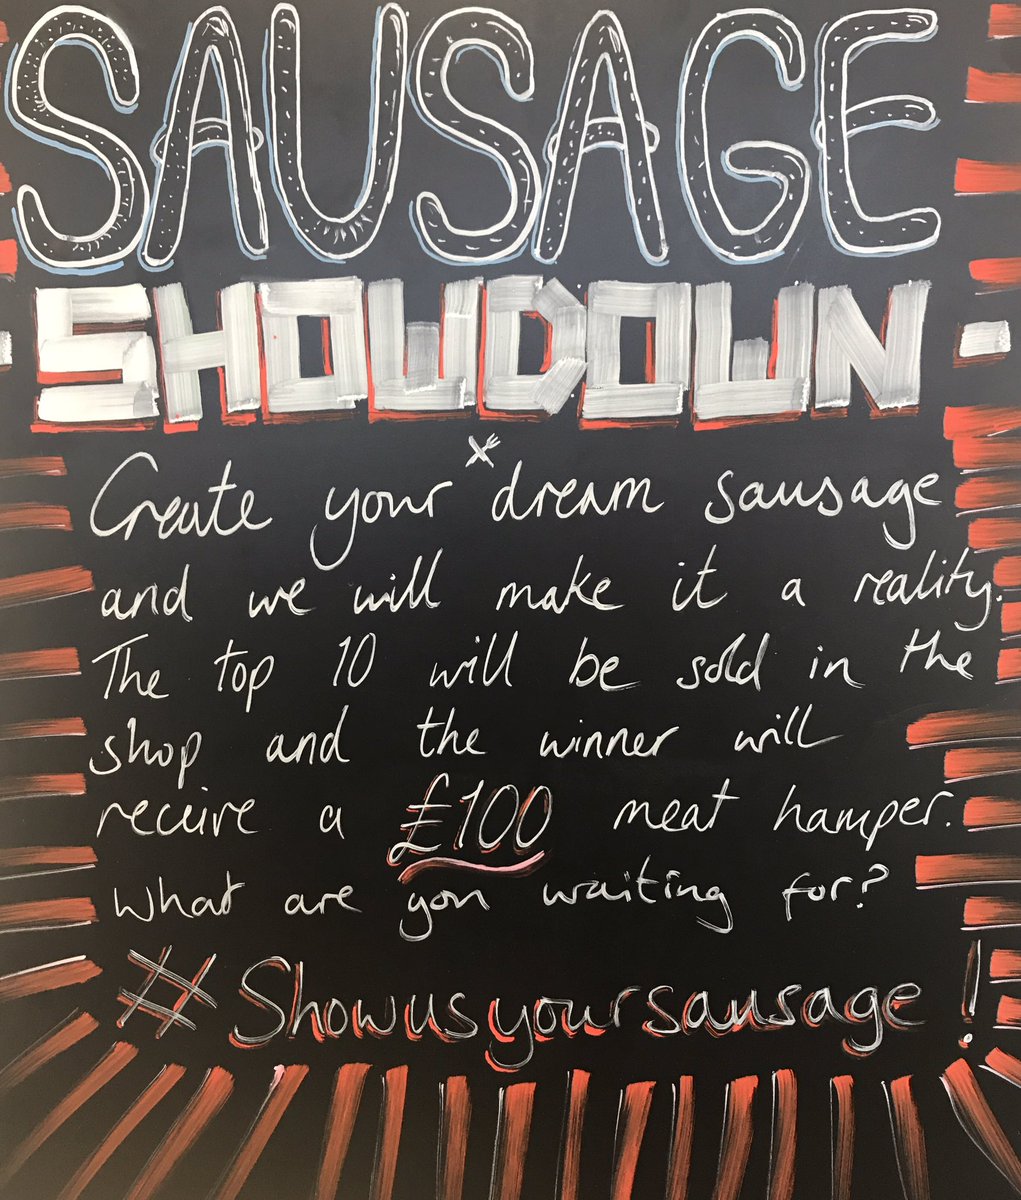 SAUSAGE
SHOWDOWN
Create your dream sausage
and we will make it a reality.
The top 10 will be sold in the
shop and the winner will
receive a £100 meat hamper.
What are you waiting for?
#Showusyoursausage!